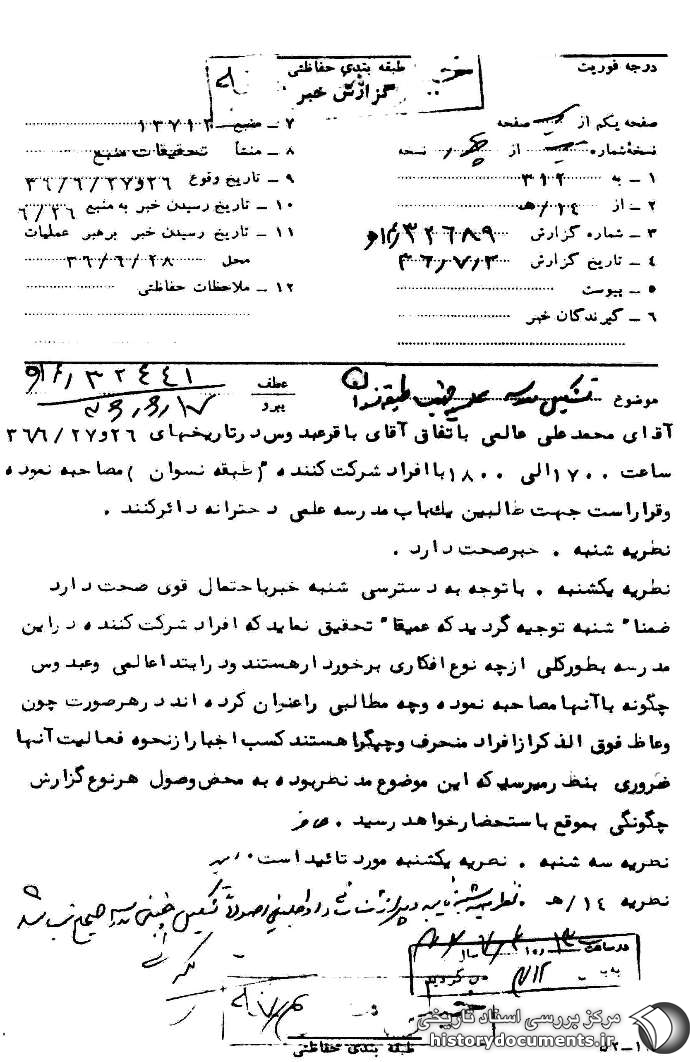 درجه فوریت
طبقه بندی حفاظتی
گزارش خبر
صفحه یکم از یک صفحه
نسخه شماره یک از چهار نسخه
۱ ـ به ۳۱۲
۲ ـ از ۱۴/هـ
۳ ـ شماره گزارش ۳۲۶۸۹
۴ ـ تاریخ گزارش ۳۶/۷/۳
۵ ـ پیوست
۶ ـ گیرندگان خبر
۷ ـ منبع ۱۳۷۱۲
۸ ـ منشأ تحقیقات منبع
۹ ـ تاریخ وقوع ۲۶و۳۶/۶/۲۷
۱۰ ـ تاریخ رسیدن خبر به منبع ۶/۲۶
۱۱ ـ تاریخ رسیدن خبر برهبر عملیات
محل ۳۶/۶/۲۸
۱۲ ـ ملاحظات حفاظتی
موضوع تشکیل مدرسه
عطف
پیرو
آقای محمدعلی عالمی باتفاق آقای باقرعبدوس درتاریخهای ۲۶و۳۶/۶/۲۷
ساعت ۱۷۰۰ الی ۱۸۰۰ باافراد شرکت کننده (طبقه نسوان) مصاحبه نموده
وقراراست جهت طالبین یکباب مدرسه علمی دخترانه دائرکنند .
نظریه شنبه . خبرصحت دارد .
نظریه یکشنبه . باتوجه به دسترسی شنبه خبرباحتمال قوی صحت دارد
ضمنا" شنبه توجیه گردیدکه عمیقا" تحقیق نماید که افراد شرکت کننده دراین
مدرسه بطورکلی ازچه نوع افکاری برخوردارهستندودرابتداعالمی وعبدوس
چگونه باآنها مصاحبه نموده وچه مطالبی راعنوان کرده اند درهرصورت چون
وعاظ فوق الذکرازافراد منحرف وچپگراهستند کسب اخبارازنحوه فعالیت آنها
ضروری بنظرمیرسدکه این موضوع مدنظربوده به محض وصول هرنوع گزارش
چگونگی بموقع باستحضارخواهد رسید .
نظریه سه شنبه . نظریه یکشنبه مورد تائید است .
نظریه ۱۴/هـ .
در ساعت روز سال
می گردید
طبقه بندی حفاظتی
مرکز بررسی اسناد تاریخی
historydocuments.ir